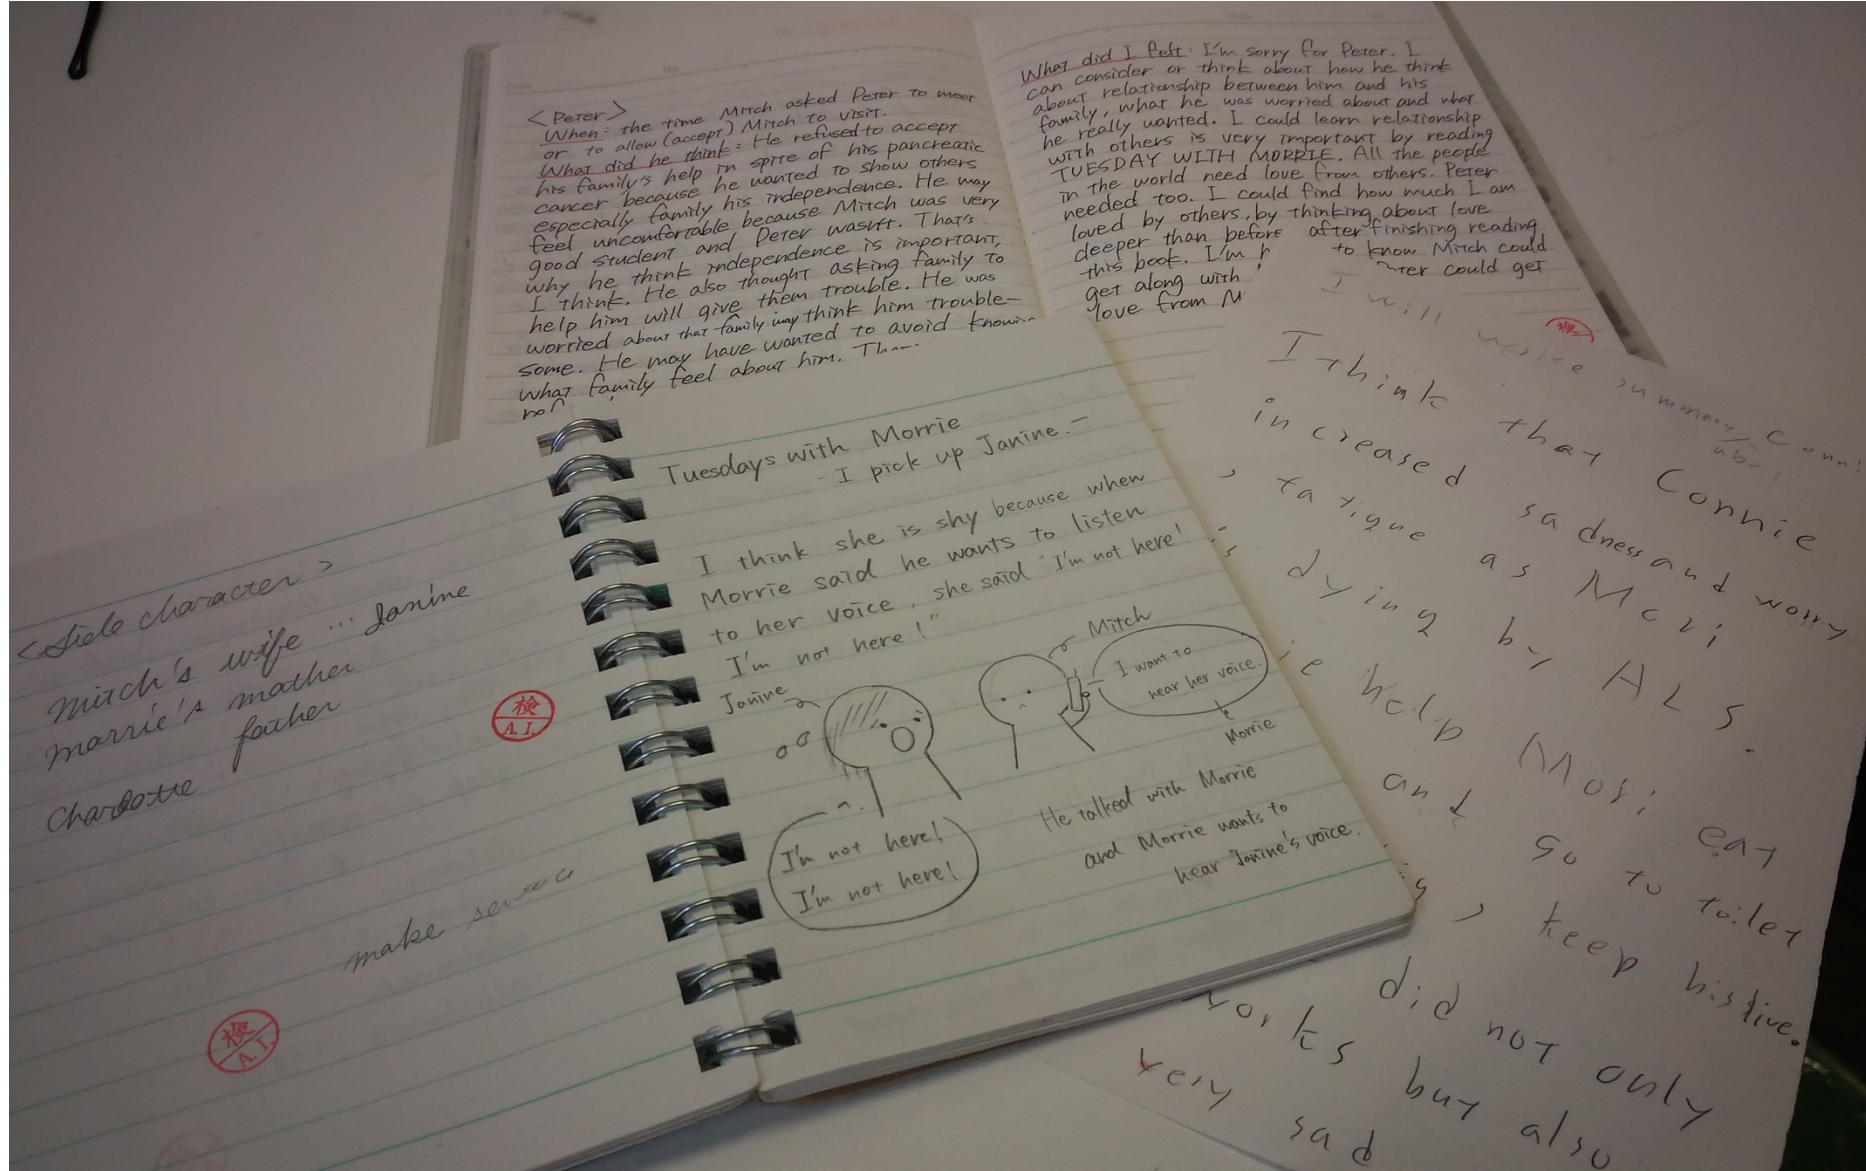 <Peter>
When: the time Mitch asked Peter to meet
or to allow (accept) Mitch to visit.
What did he think: He refused to accept
his family's help in spite of his pancreatic
cancer because he wanted to show others
especially family his independence. He may
feel uncomfortable because Mitch was very
good student and Peter wasn't. That's
why he think independence is important,
I think. He also thought asking family to
help him will give them trouble. He was
worried about that family may think him trouble-
some. He may have wanted to avoid knowing
what family feel about him.
What did I felt: I'm sorry for Peter. I
can consider or think about how he think
about relationship between him and his
family, what he was worried about and what
he really wanted. I could learn relationship
with others is very important by reading
TUESDAY WITH MORRIE. All the people
in the world need love from others. Peter
needed too. I could find how much I am
loved by others, by thinking about love
deeper than before after finishing reading
this book. I'm to know Mitch could
get along with could get
love from M
検
<Side character>
Mitch's wife ... Janine
Marrie's mather
father
Charlotte
make
検
A.I.
検
A.I.
Tuesdays with Morrie
- I pick up Janine. -
I think she is shy because when
Morrie said he wants to listen
to her voice, she said "I'm not here!
I'm not here!"
Janine
Mitch
I want to
hear her voice.
Morrie
I'm not here!
I'm not here!
He talked with Morrie
and Morrie wants to
hear Janine's voice.
I will write summary about Conni
I think that Connie
increased sadness and worry
, tatigue as Mori
dying by ALS.
help Mori eat
and go to toilet
, keep his live.
did not only
works but also
very sad